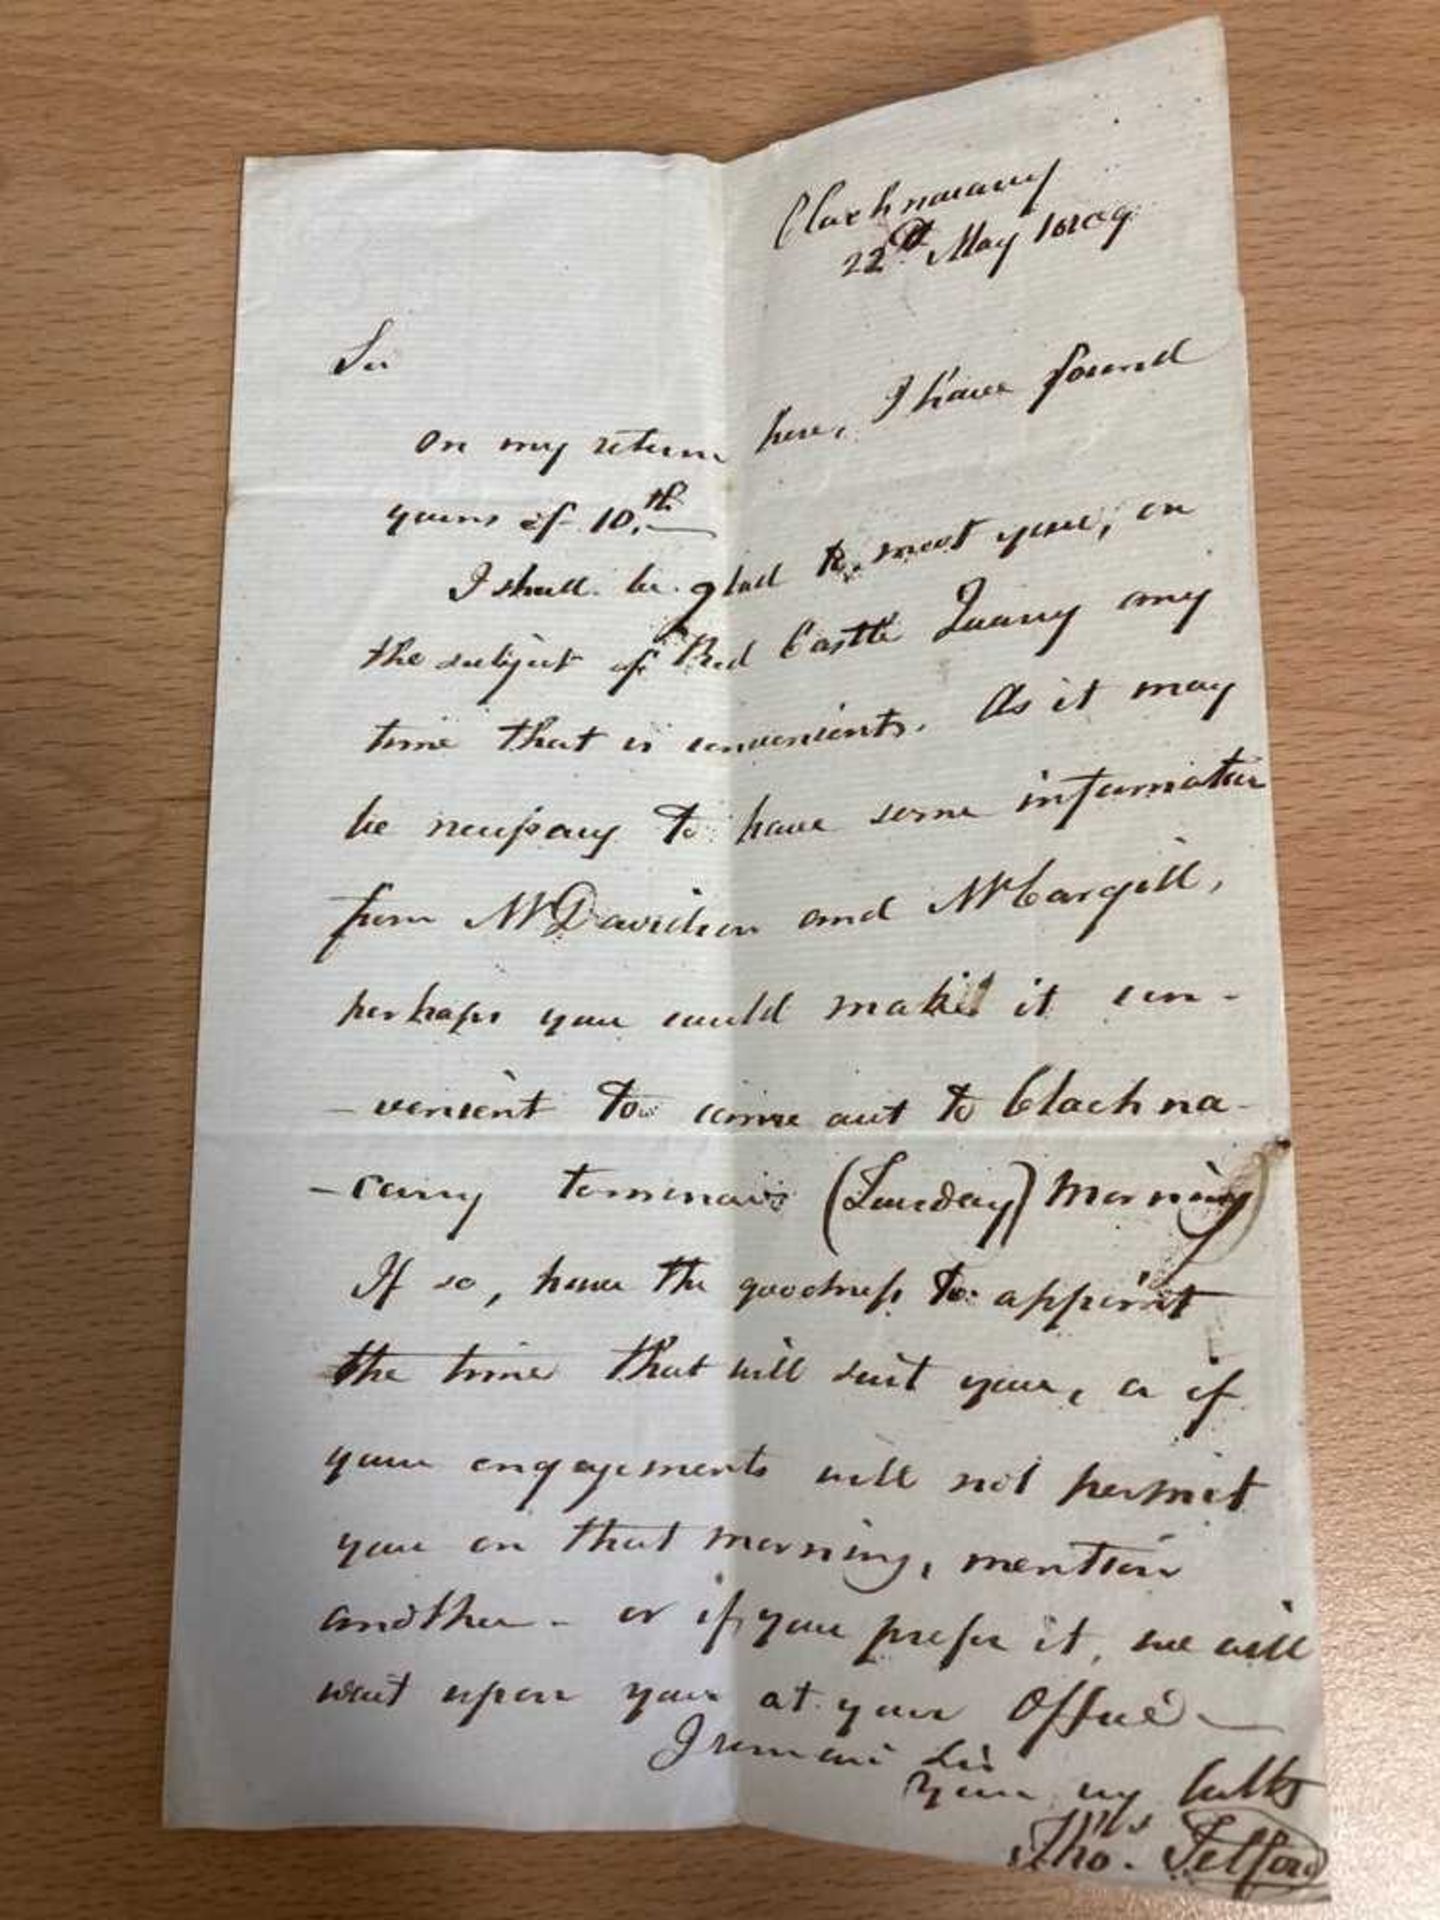 Clachnacarry
22d May 1809
Sir
On my return here, I have found
yours of 10.th
I shall be glad to meet you, on
the subject of Red Castle Quarry any
time that is convenient. As it may
be necessary to have some information
from Mr Davidson and Mr Cargill,
perhaps you could make it con-
-venient to come out to Clachna-
-carry tomorrow (Tuesday) morning
If so, have the goodness to appoint
the time that will suit you, or if
your engagements will not permit
you on that morning, mention
another - or if you prefer it, we will
wait upon you at your Office
I remain Sir
Your
Thos. Telford